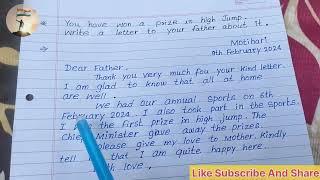 You have won a prize in high Jump.
write a letter to your father about it.
Motihari
9th February 2024
Dear Father,
Thank you very much fou your kind letter.
I am glad to know that all at home
are well.
We had our annual sports on 6th
February 2024. I also took part in the sports.
I the first prize in high jump. The
Chief Minister gave away the prizes.
please give my love to mother. Kindly
tell that I am quite happy here.
love,
Like Subscribe And Share